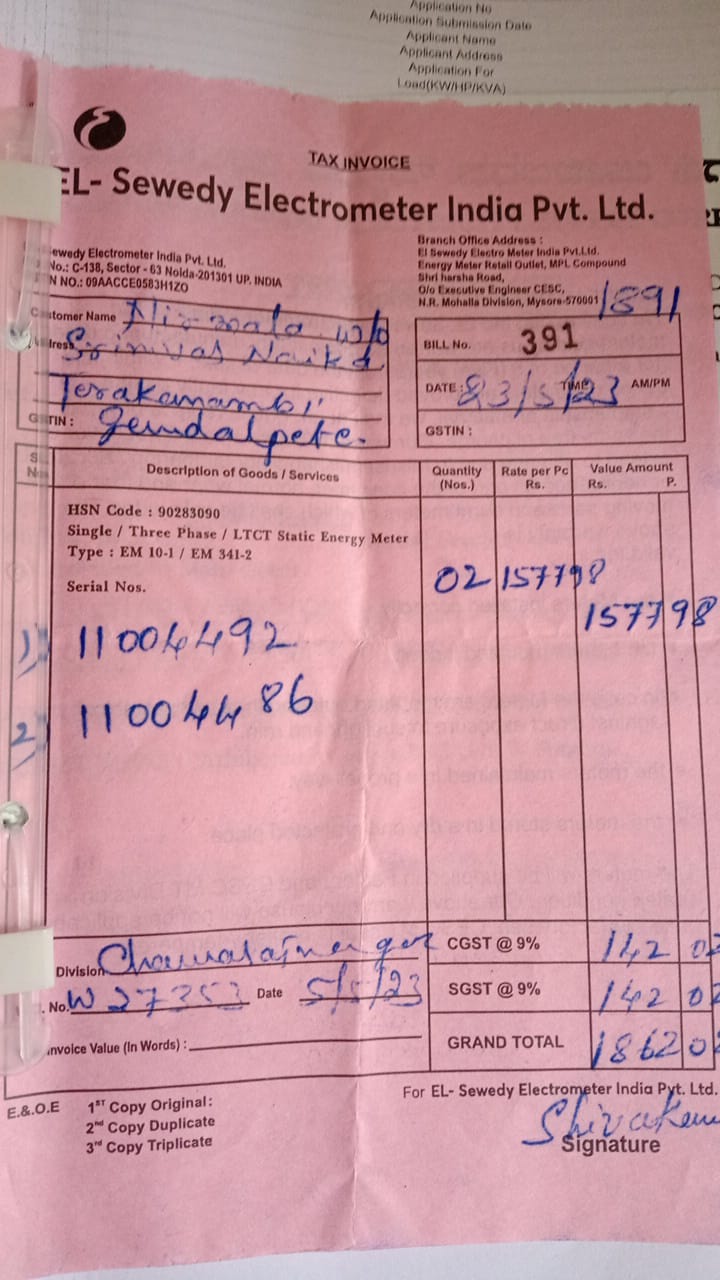 Application No
Application Submission Date
Applicant Name
Applicant Address
Application For
Load(KW/HP/KVA)
TAX INVOICE
EL- Sewedy Electrometer India Pvt. Ltd.
ewedy Electrometer India Pvt. Ltd.
No.: C-138, Sector - 63 Noida-201301 UP. INDIA
N NO.: 09AACCE0583H1ZO
Branch Office Address :
El Sewedy Electro Meter India Pvt.Ltd.
Energy Meter Retail Outlet, MPL Compound
Shri harsha Road,
O/o Executive Engineer CESC,
N.R. Mohalla Division, Mysore-570001
1891
Customer Name Nirmala w/o
Address Srinivas Naika
Terakanambi
GSTIN : Gundalpete.
BILL No. 391
DATE : 23/5/23 TIME AM/PM
GSTIN :
S No Description of Goods / Services Quantity (Nos.) Rate per Pc Rs. Value Amount Rs. P.
HSN Code : 90283090
Single / Three Phase / LTCT Static Energy Meter
Type : EM 10-1 / EM 341-2
Serial Nos.
02 157798 157798
1) 11004492
2) 11004486
Division Chamarajnagar
. No. W 27353 Date 5/5/23
Invoice Value (In Words) :
CGST @ 9% 142 02
SGST @ 9% 142 02
GRAND TOTAL 1862 02
E.&.O.E
1ST Copy Original:
2nd Copy Duplicate
3rd Copy Triplicate
For EL- Sewedy Electrometer India Pvt. Ltd.
Shivakum
Signature